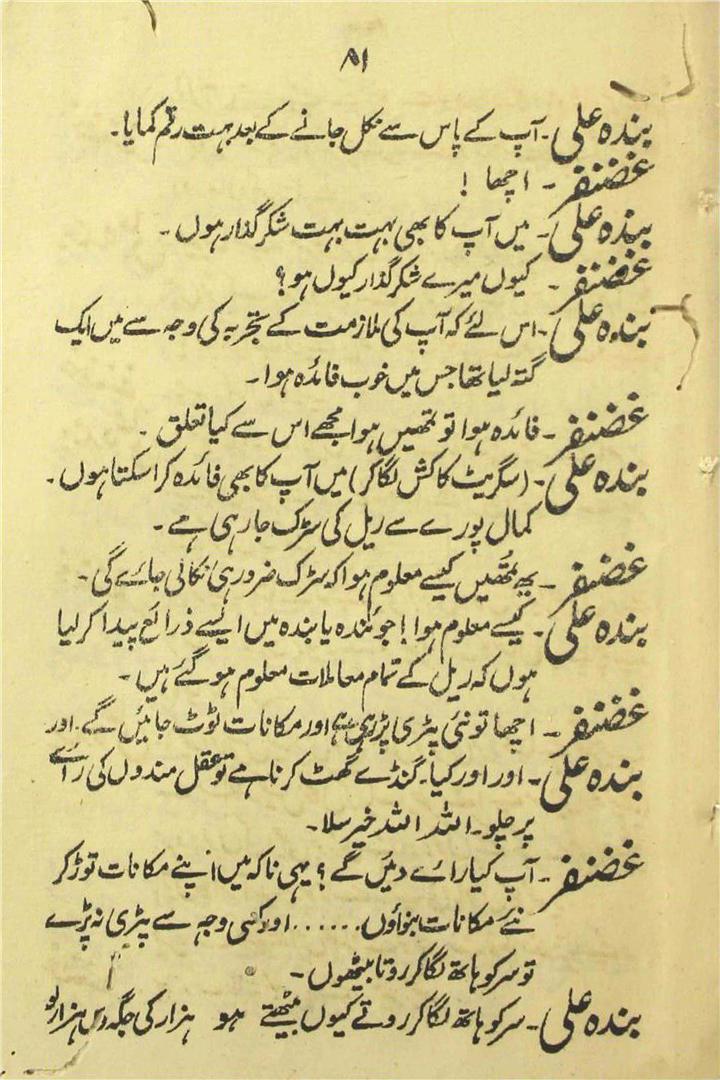 ۸۱
بندہ علی ۔ آپ کے پاس سے نکل جانے کے بعد بہت رقم کمایا ۔
غضنفر ۔ اچھا !
بندہ علی ۔ میں آپ کا بھی بہت بہت شکر گذار ہوں ۔
غضنفر ۔ کیوں میرے شکر گذار کیوں ہو ؟
بندہ علی ۔ اس لئے کہ آپ کی ملازمت کے تجربہ کی وجہ سے میں ایک
گتہ لیا تھا جس میں خوب فائدہ ہوا ۔
غضنفر ۔ فائدہ ہوا تو تمھیں ہوا مجھے اس سے کیا تعلق ۔
بندہ علی ۔ (سگریٹ کا کش لگا کر) میں آپ کا بھی فائدہ کرا سکتا ہوں ۔
کمال پورے سے ریل کی سڑک جا رہی ہے ۔
غضنفر ۔ یہ تُمھیں کیسے معلوم ہوا کہ سڑک ضرور ہی نکالی جائے گی ۔
بندہ علی ۔ کیسے معلوم ہوا ! جوئندہ یا بندہ میں ایسے ذرائع پیدا کر لیا
ہوں کہ ریل کے تمام معاملات معلوم ہو گئے ہیں ۔
غضنفر ۔ اچھا تو نئی پٹری پڑ رہی ہے اور مکانات ٹوٹ جائیں گے ۔ اور
بندہ علی ۔ اور اور کیا ۔ گنڈے گھٹ کرنا ہے تو عقل مندوں کی رائے
پر چلو ۔ اللہ اللہ خیر سلا ۔
غضنفر ۔ آپ کیا رائے دئیں گے ؟ یہی نا کہ میں اپنے مکانات توڑ کر
نئے مکانات بنواؤں ...... اور کسی وجہ سے پٹری نہ پڑے
تو سر کو ہاتھ لگا کر روتا بیٹھوں ۔
بندہ علی ۔ سر کو ہاتھ لگا کر روتے کیوں بیٹھتے ہو ہزار کی جگہ دس ہزار لو